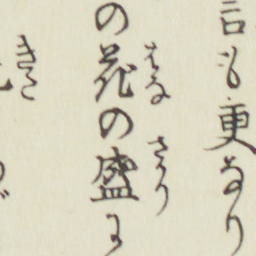 言も更なり
の花の盛に
はな さかり
きさ